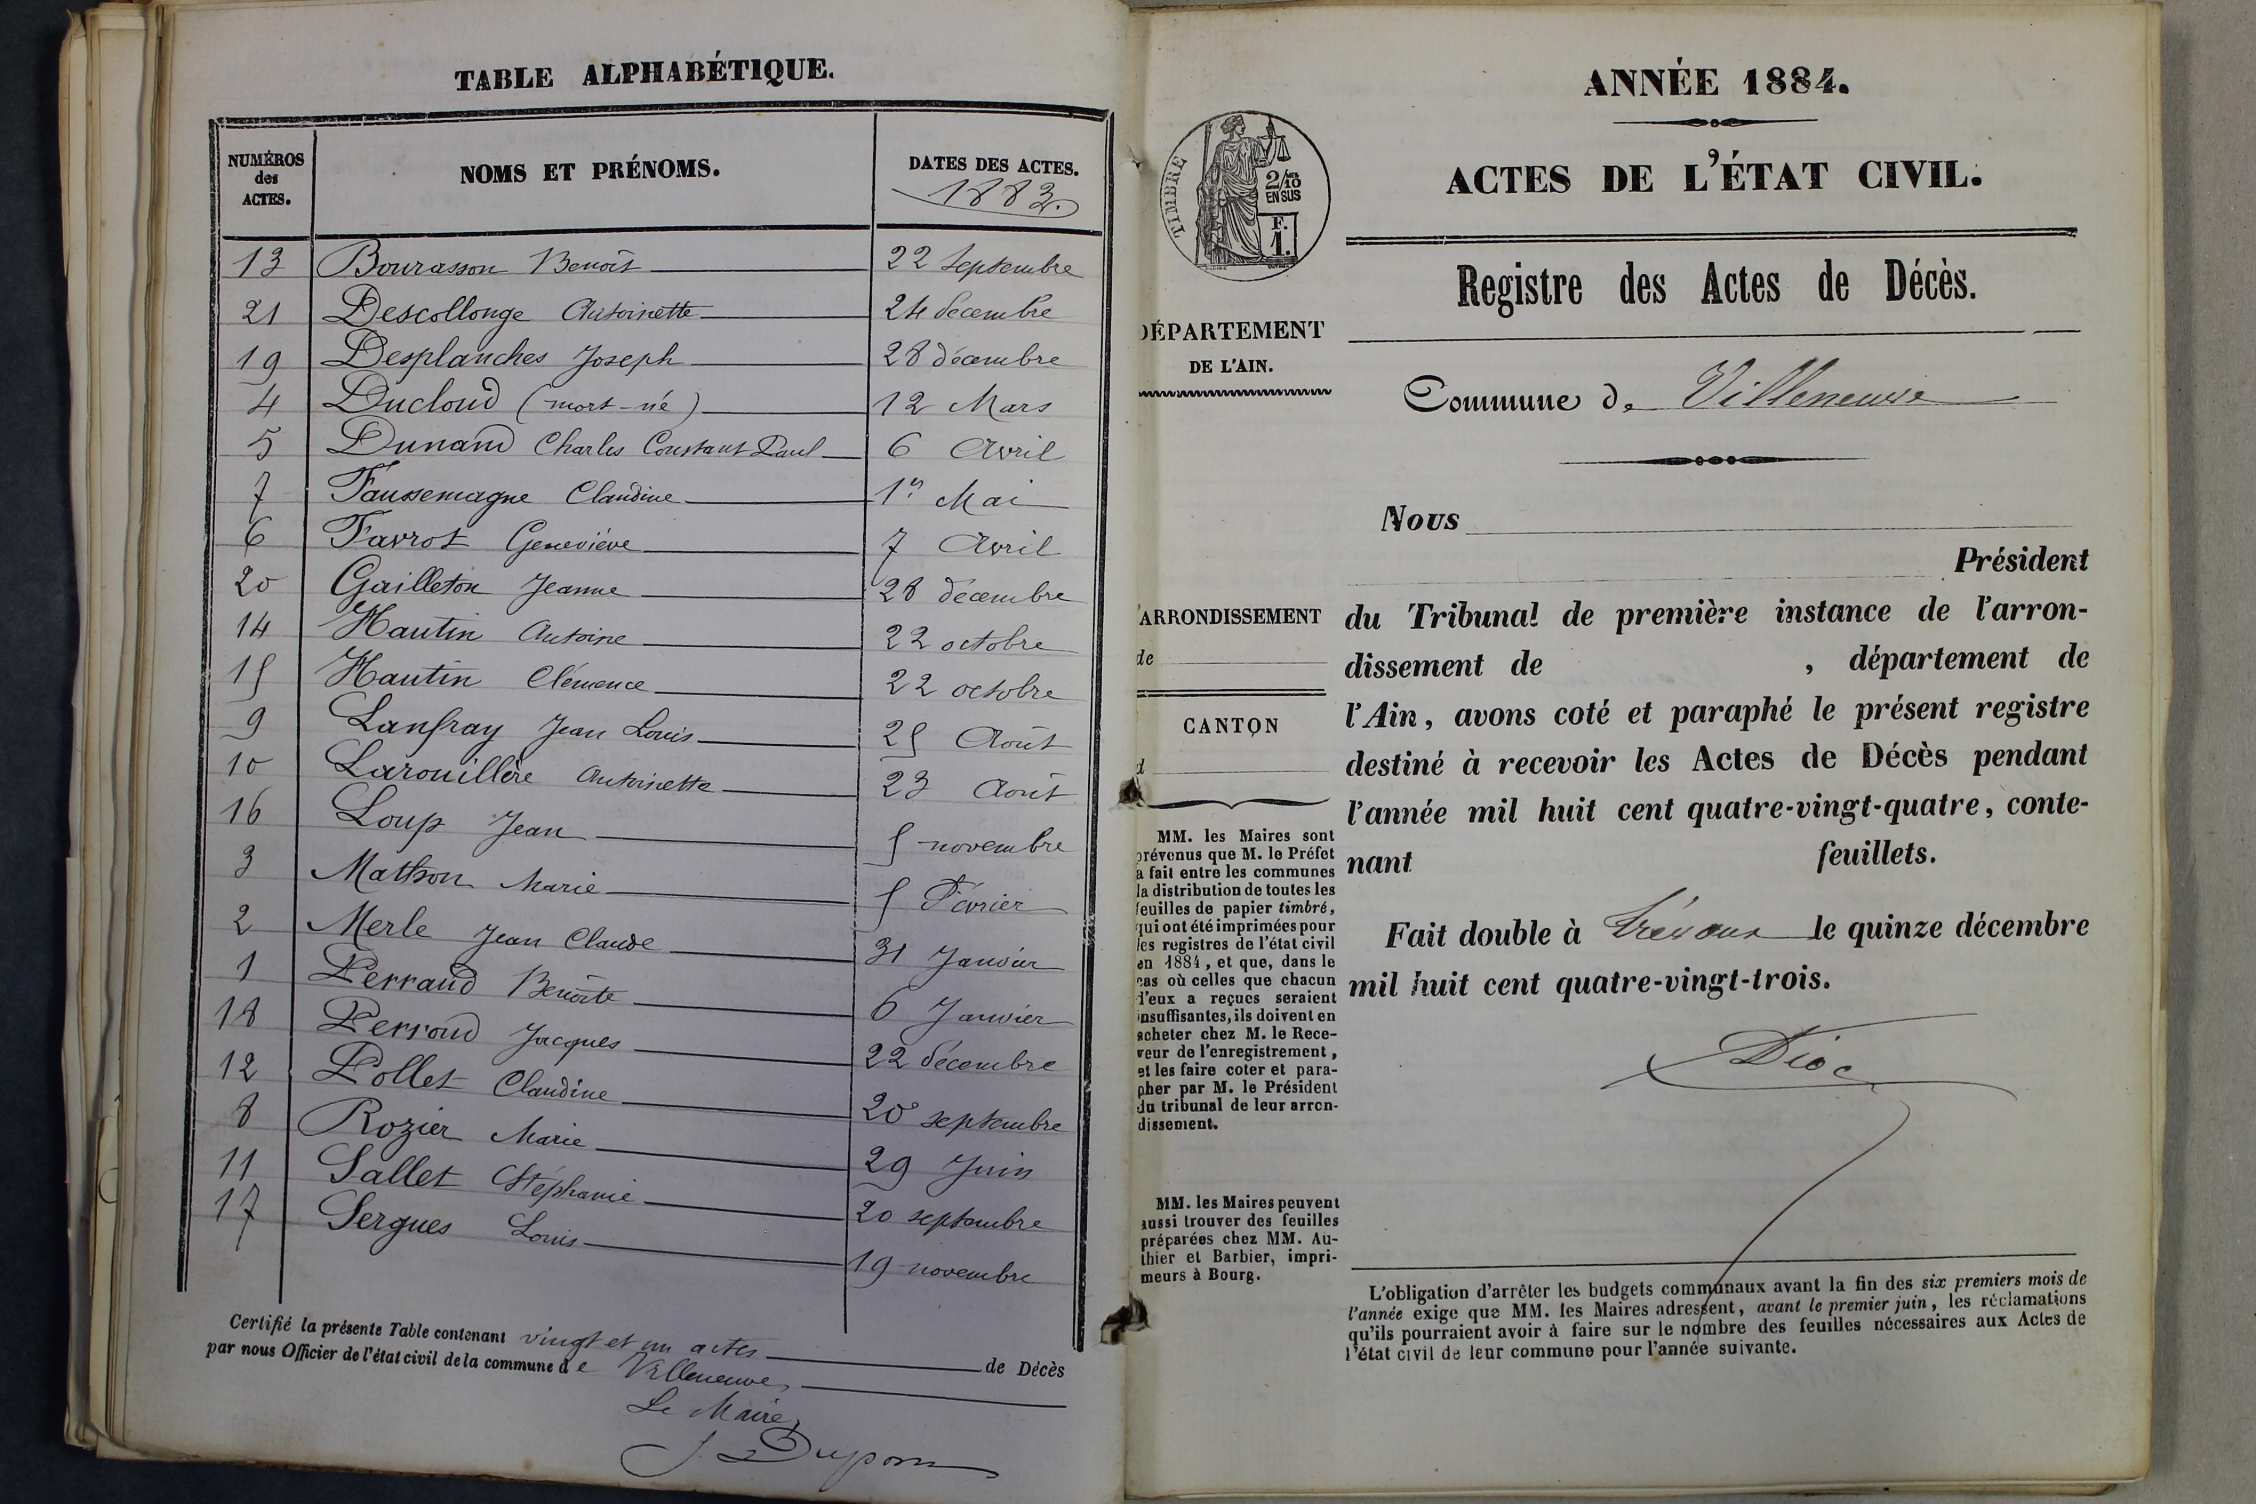 TABLE ALPHABÉTIQUE.
NUMÉROS des ACTES. NOMS ET PRÉNOMS. DATES DES ACTES.
1883.
13 Bourasson Benoît 22 Septembre
21 Descollonge Antoinette 24 décembre
19 Desplanches Joseph 28 décembre
4 Ducloud (mort-né) 12 Mars
5 Dunand Charles Constant Paul 6 Avril
7 Faussemagne Claudine 1er Mai
6 Favrot Geneviève 7 Avril
20 Gailleton Jeanne 28 décembre
14 Hautin Antoine 22 octobre
15 Hautin Clémence 22 octobre
9 Lanfray Jean Louis 25 Août
10 Larouillère Antoinette 23 Août
16 Loup Jean 5 novembre
3 Mathon Marie 5 Février
2 Merle Jean Claude 31 Janvier
1 Perraud Benoîte 6 Janvier
18 Perroud Jacques 22 décembre
12 Pollet Claudine 20 septembre
8 Rozier Marie 29 Juin
11 Sallet Stéphanie 20 septembre
17 Sergues Louis 19 novembre
Certifié la présente Table contenant vingt et un actes de Décès
par nous Officier de l'état civil de la commune de Villeneuve,
Le Maire,
J. Dupont
ANNÉE 1884.
ACTES DE L'ÉTAT CIVIL.
TIMBRE
2/10
EN SUS
F.
1.
Registre des Actes de Décès.
DÉPARTEMENT
DE L'AIN.
Commune de Villeneuve
Nous
Président
ARRONDISSEMENT
de
CANTON
d
du Tribunal de première instance de l'arron-
dissement de , département de
l'Ain, avons coté et paraphé le présent registre
destiné à recevoir les Actes de Décès pendant
l'année mil huit cent quatre-vingt-quatre, conte-
nant feuillets.
Fait double à Trévoux le quinze décembre
mil huit cent quatre-vingt-trois.
MM. les Maires sont
prévenus que M. le Préfet
a fait entre les communes
la distribution de toutes les
feuilles de papier timbré,
qui ont été imprimées pour
les registres de l'état civil
en 1884, et que, dans le
cas où celles que chacun
d'eux a reçues seraient
insuffisantes, ils doivent en
acheter chez M. le Rece-
veur de l'enregistrement,
et les faire coter et para-
pher par M. le Président
du tribunal de leur arron-
dissement.
MM. les Maires peuvent
aussi trouver des feuilles
préparées chez MM. Au-
thier et Barbier, impri-
meurs à Bourg.
L'obligation d'arrêter les budgets communaux avant la fin des six premiers mois de
l'année exige que MM. les Maires adressent, avant le premier juin, les réclamations
qu'ils pourraient avoir à faire sur le nombre des feuilles nécessaires aux Actes de
l'état civil de leur commune pour l'année suivante.